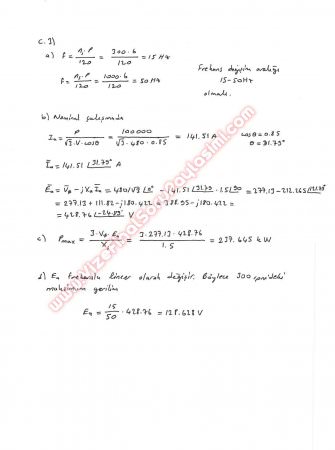 C.3)
a) f = n_s.P / 120 = 300.6 / 120 = 15 Hz
f = n_s.P / 120 = 1000.6 / 120 = 50 Hz
Frekans değişim aralığı
15-50Hz
olmalı.
b) Nominal çalışmada
I_a = P / √3.V.cosθ = 100.000 / √3.480.0.85 = 141.51 A
cosθ = 0.85
θ = 31.79°
Ī_a = 141.51 ∠31.79° A
Ē_a = V̄_φ - jX_s Ī_a = 480/√3 ∠0° - 141.51 ∠31.79 . 1.5 ∠90 = 277.13 - 212.265
= 277.13 + 111.82 - j180.422 = 388.95 - j180.422 =
= 428.76 ∠-24.89° V
c) P_max = 3.V_φ.E_a / X_s = 3.277.13.428.76 / 1.5 = 237.645 kW
d) E_a frekansla lineer olarak değişir. Böylece 300 rpm'deki
maksimum gerilim
E_a = 15 / 50 . 428.76 = 128.628 V